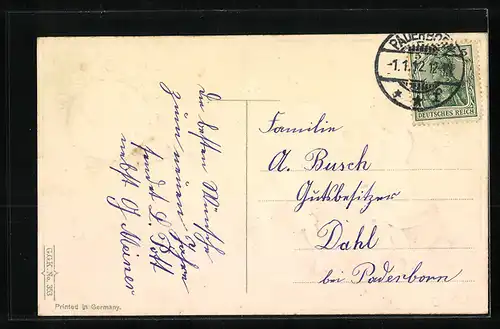 Die besten Wünsche
zum neuen Jahre
sendet D. Pott
nebst
Familie
A. Busch
Gutsbesitzer
Dahl
bei Paderborn
PADERBORN
-1.1.12.12-
DEUTSCHES REICH
G.G.K. No. 353
Printed in Germany.